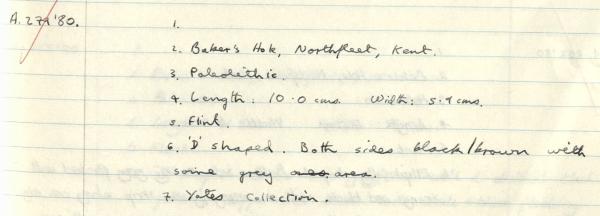 A.279'80. 1.
2. Baker's Hole, Northfleet, Kent.
3. Paleolithic.
4. Length: 10.0 cms. Width: 5.9 cms.
5. Flint.
6. 'D' shaped. Both sides black/brown with
some grey area.
7. Yates Collection.